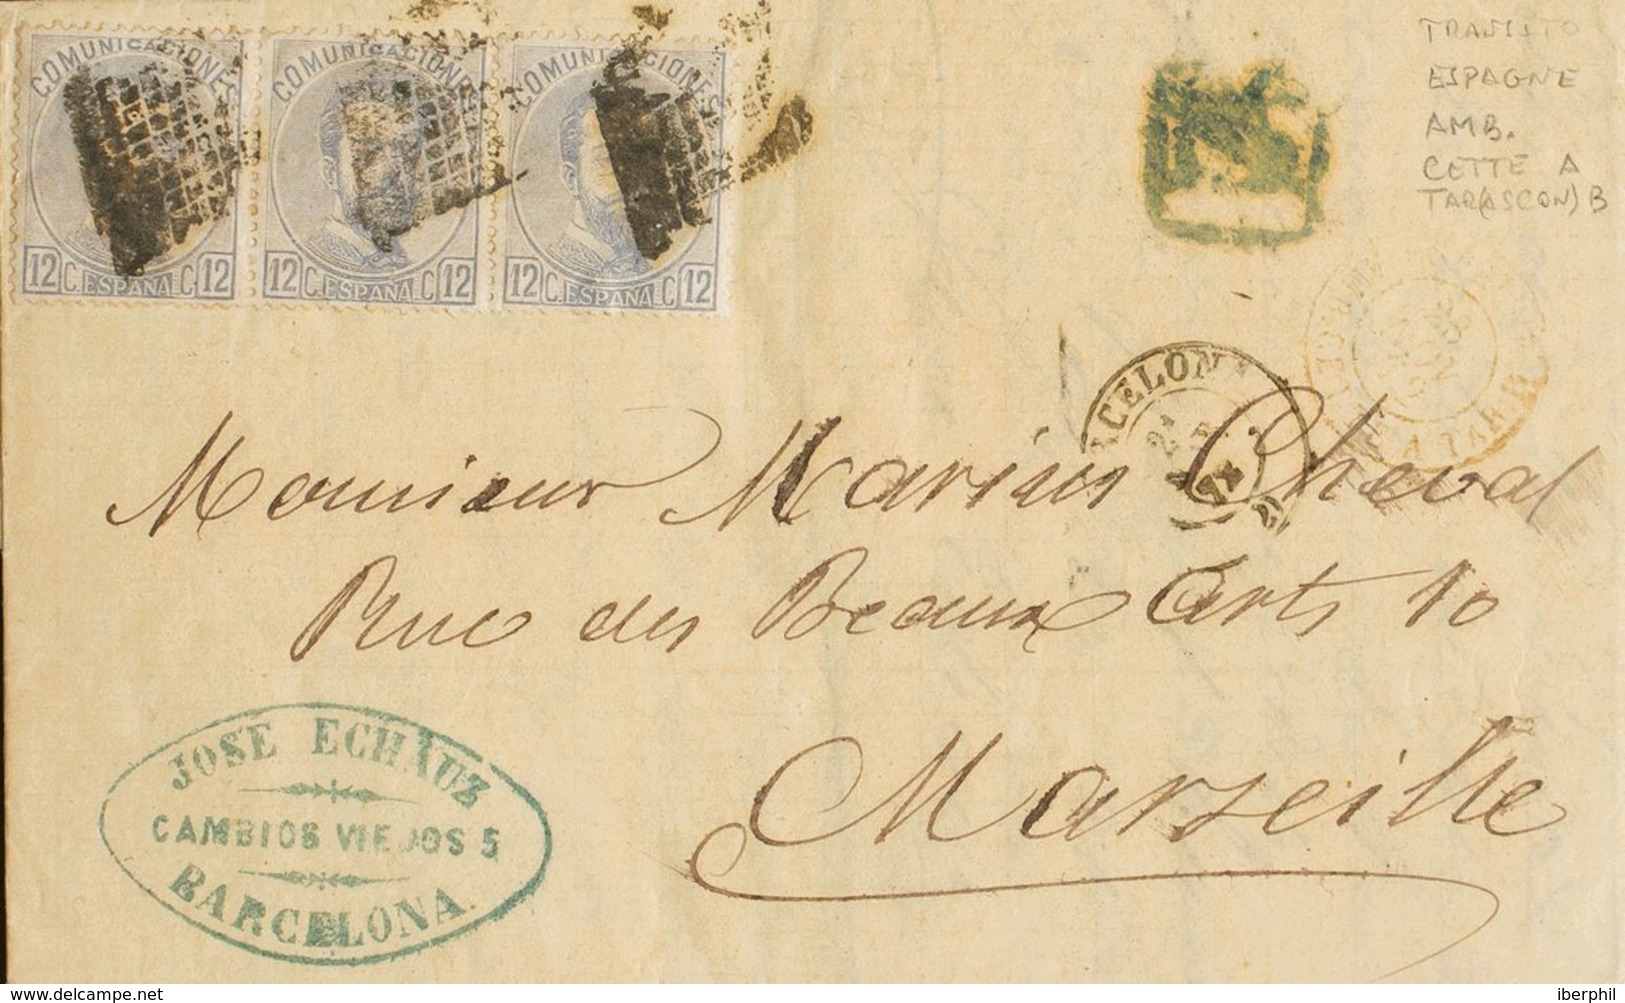 COMUNICACIONES COMUNICACIONES COMUNICACIONES
12 C. ESPAÑA C 12 12 C. ESPAÑA C 12 12 C. ESPAÑA C 12
TRANSITO
ESPAGNE
AMB.
CETTE A
TAR(ASCON) B
BARCELONA
21
73
Monsieur Marius Cheval
Rue des Beaux Arts 10
Marseille
JOSE ECHAUZ
CAMBIOS VIEJOS 5
BARCELONA
www.delcampe.net
iberphil